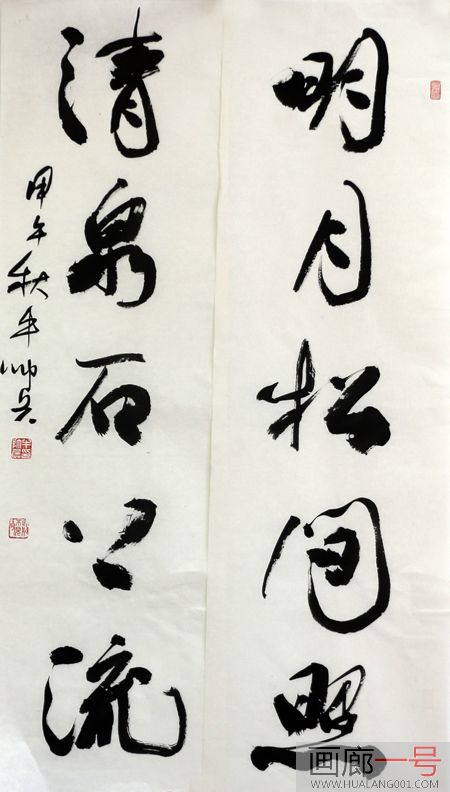 明月松间照
清泉石上流
甲午秋牛帅兵
画廊一号
WWW.HUALANG001.COM